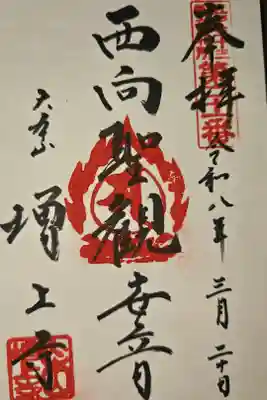 奉拝
令和八年三月二十日
西向聖観世音
大本山
増上寺